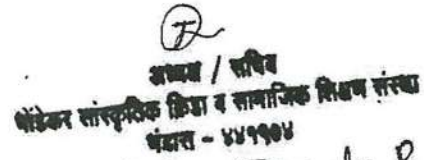 अध्यक्ष / सचिव
भोंडेकर सांस्कृतिक क्रिडा व सामाजिक शिक्षण संस्था
भंडारा - ४४१९०४